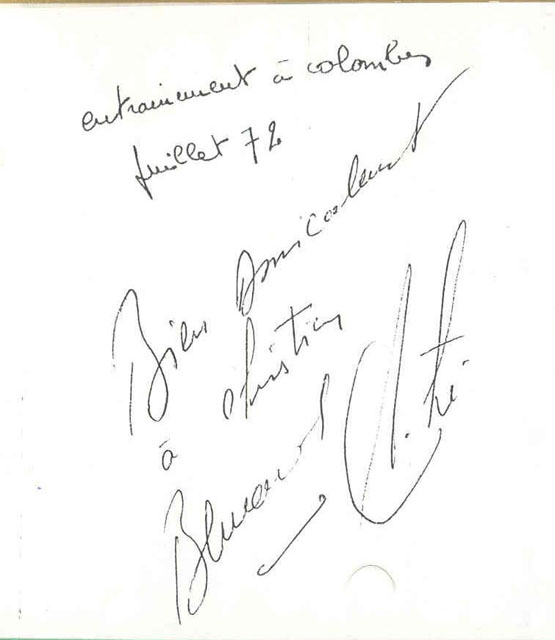 entrainement à colombes
juillet 72
Bien Amicalement
à christian